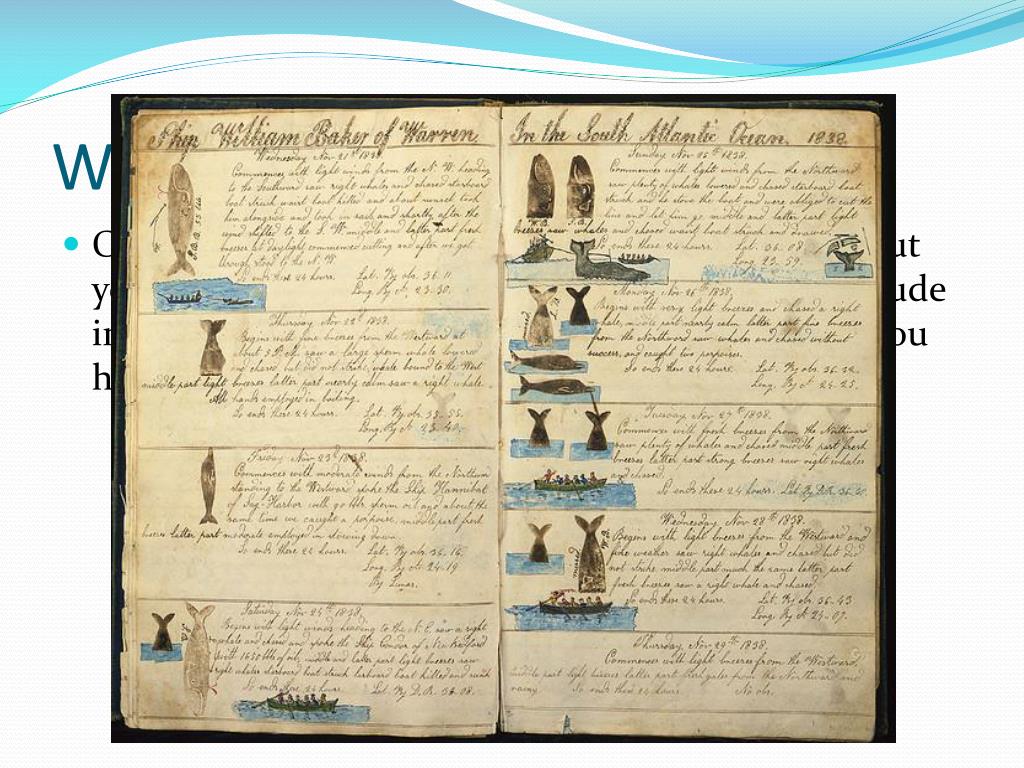 W
C
ut
y
ude
in
ou
h
Ship William Baker of Warren.
Wednesday Nov 21st 1838.
Commences with light winds from the N. W. heading
to the Southward saw right whales and chased starboard
boat struck waist boat killed and about sunset took
him alongside and took in sail and shortly after the
wind shifted to the S. W. middle and latter part fresh
breezes at daylight commenced cutting and after we got
through stood to the N. W.
So ends these 24 hours. Lat. By obs. 36. 11.
Long. By 23. 30.
S.B. 55 bbls
Thursday Nov 22d 1838.
Begins with fine breezes from the Westward at
about 5 P.M. saw a large sperm whale lowered
and chased but did not strike, whale bound to the West
middle part light breezes latter part nearly calm saw a right whale.
All hands employed in boiling.
So ends these 24 hours. Lat. By obs. 35. 55.
Long. By 23. 40.
Friday Nov 23d 1838.
Commences with moderate winds from the Northern
standing to the Westward spoke the Ship Hannibal
of Sag-Harbor with sperm oil and about the
same time we caught a porpoise. middle part fresh
breezes latter part moderate employed in stowing down.
So ends these 24 hours. Lat. By obs. 36. 16.
Long. By 24. 19
By Lunar.
Saturday Nov 24th 1838.
Begins with light winds heading to the N. E. saw a right
whale and chased and spoke the Ship Condor of New Bedford
with 1650 bbls of oil, middle and latter part light breezes saw
right whales starboard boat struck larboard boat killed and sunk
So ends these 24 hours. Lat. By D. R. 36. 08.
In the South Atlantic Ocean. 1838.
Sunday Nov 25th 1838.
Commences with light winds from the Northward
saw plenty of whales lowered and chased starboard boat
struck and he stove the boat and were obliged to cut the
line and let him go middle and latter part light
breezes saw whales and chased waist boat struck and drawed.
So ends these 24 hours. Lat. 36. 08
Long. 23. 59.
W.B. S.B.
Monday Nov 26th 1838.
Begins with very light breezes and chased a right
whale, middle part nearly calm latter part fine breezes
from the Northward saw whales and chased without
success, and caught two porpoises.
So ends these 24 hours. Lat. By obs. 36. 32.
Long. By 24. 25.
Tuesday Nov 27th 1838.
Commences with fresh breezes from the Northward
saw plenty of whales and chased middle part fresh
breezes latter part strong breezes saw right whales
and chased
So ends these 24 hours. Lat. By D. R. 36.
Wednesday Nov 28th 1838.
Begins with light breezes from the Westward and
fine weather saw right whales and chased but did
not strike. middle part much the same latter part
fresh breezes saw a right whale and chased.
So ends these 24 hours. Lat. By obs. 36. 43
Long. By 25. 07.
missed W.B.
Thursday Nov 29th 1838.
Commences with light breezes from the Westward,
middle part light breezes latter part fresh gales from the Northward and
rainy. So ends these 24 hours. No obs.